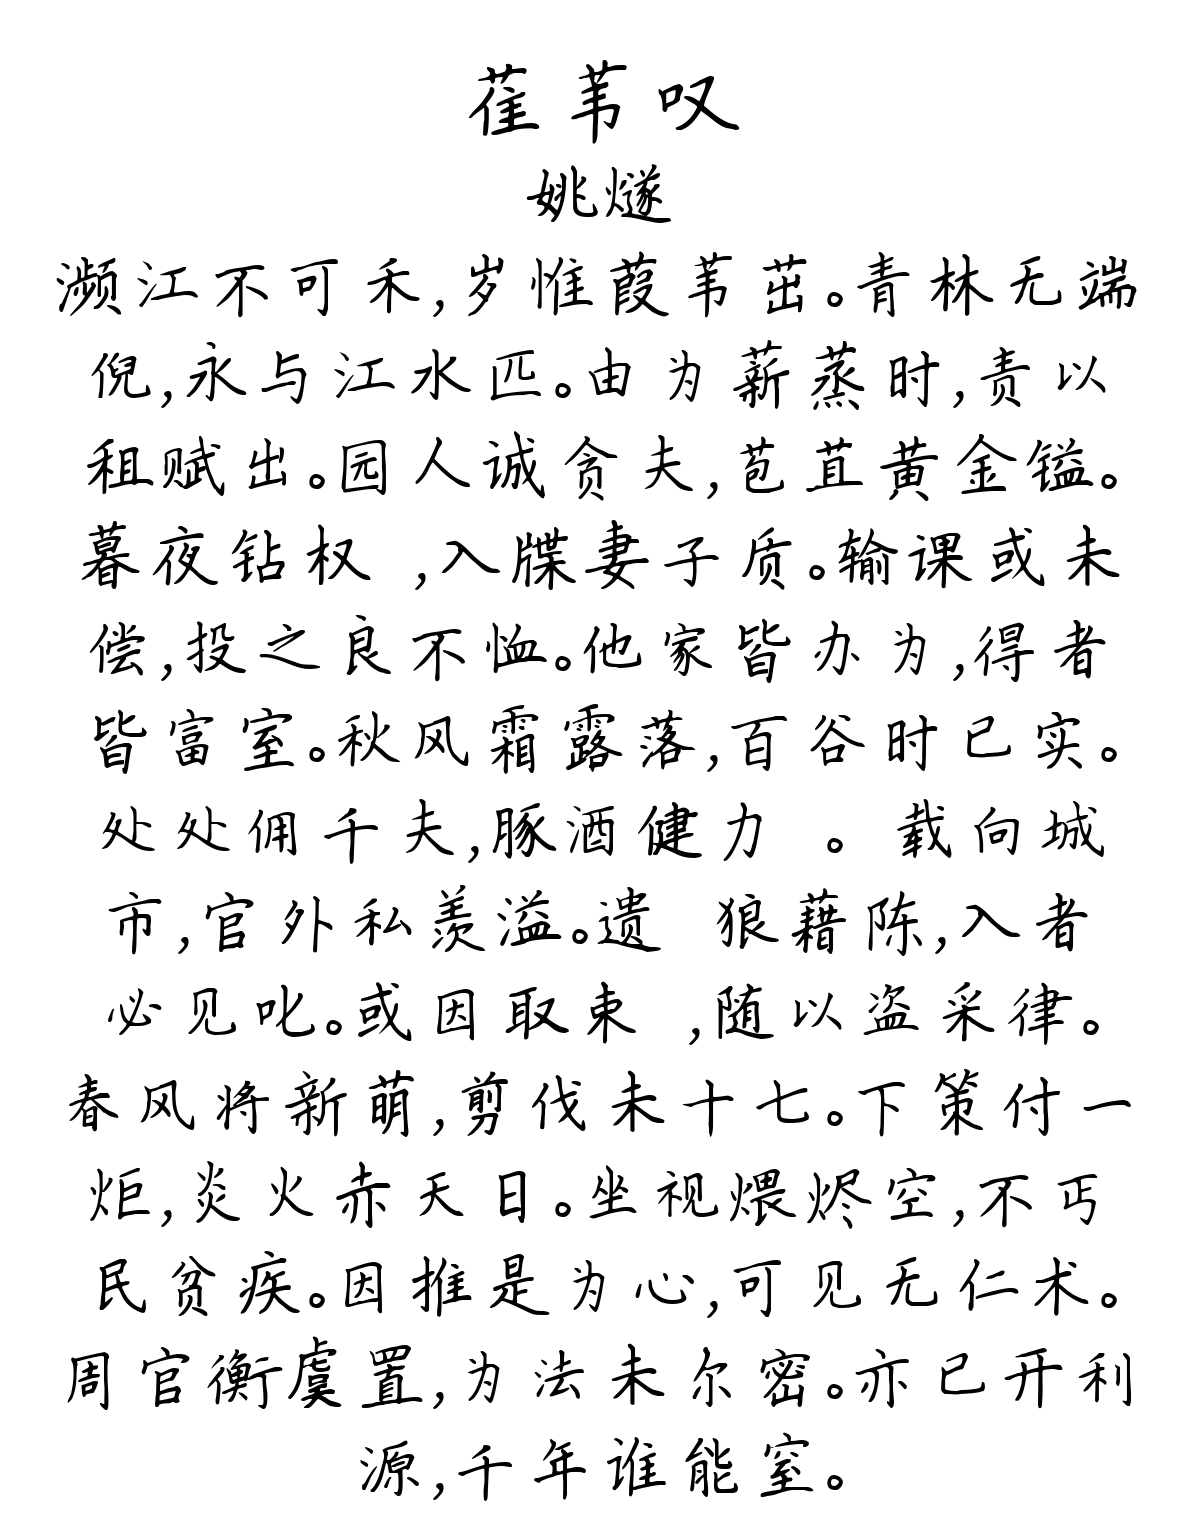 萑苇叹
姚燧
濒江不可禾,岁惟葭苇茁。青林无端
倪,永与江水匹。由为薪蒸时,责以
租赋出。园人诚贪夫,苞苴黄金镒。
暮夜钻权 ,入牒妻子质。输课或未
偿,投之良不恤。他家皆办为,得者
皆富室。秋风霜露落,百谷时已实。
处处佣千夫,豚酒健力 。载向城
市,官外私羡溢。遗 狼藉陈,入者
必见叱。或因取束 ,随以盗采律。
春风将新萌,剪伐未十七。下策付一
炬,炎火赤天日。坐视煨烬空,不丐
民贫疾。因推是为心,可见无仁术。
周官衡虞置,为法未尔密。亦已开利
源,千年谁能窒。